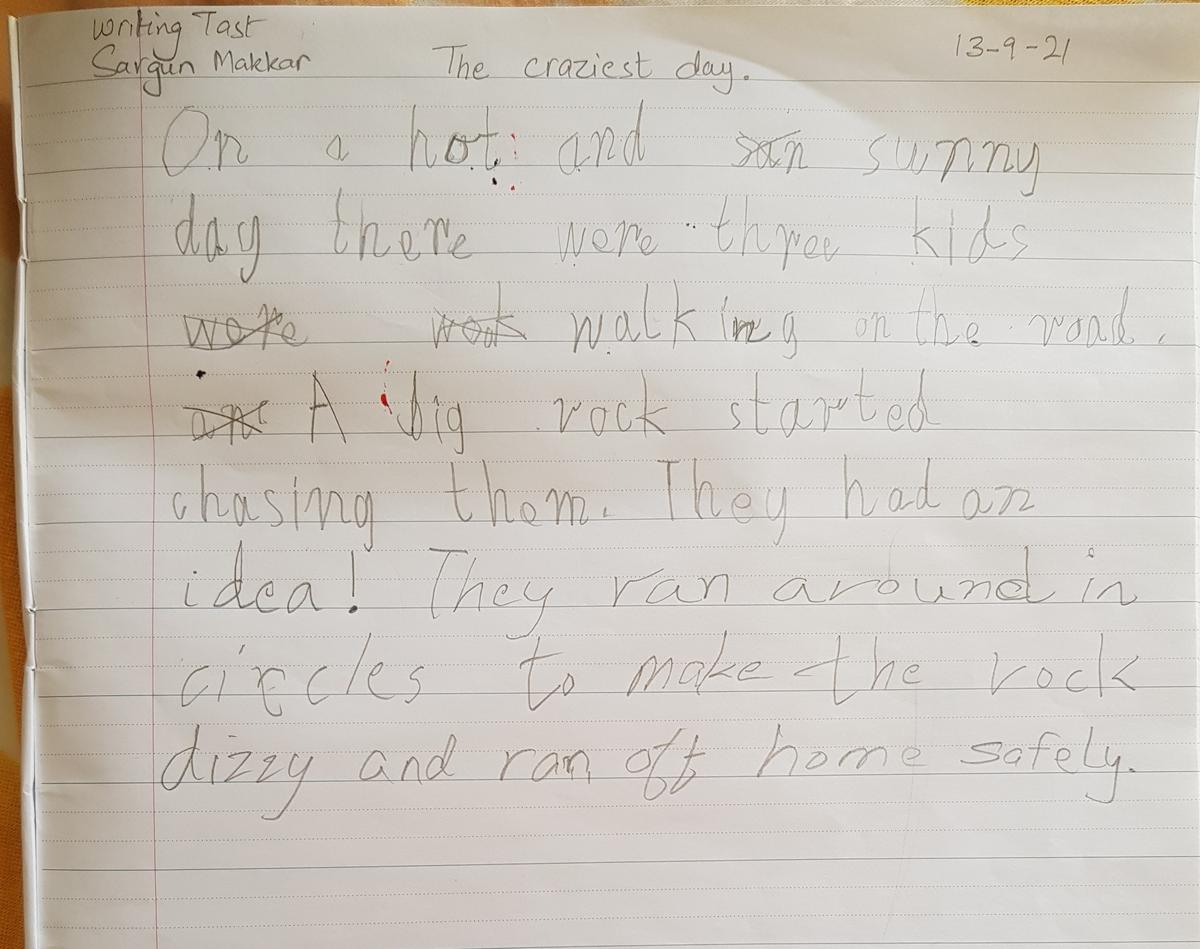 Writing Tast
Sargun Makkar The craziest day. 13-9-21
On a hot and sun sunny
day there were three kids
were walking on the road.
A big rock started
chasing them. They had an
idea! They ran around in
circles to make the rock
dizzy and ran off home safely.